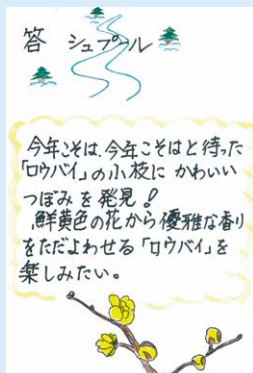 答 シュプール
今年こそは、今年こそはと待った
「ロウバイ」の小枝に かわいい
つぼみを発見!
鮮黄色の花から優雅な香り
をただよわせる「ロウバイ」を
楽しみたい。